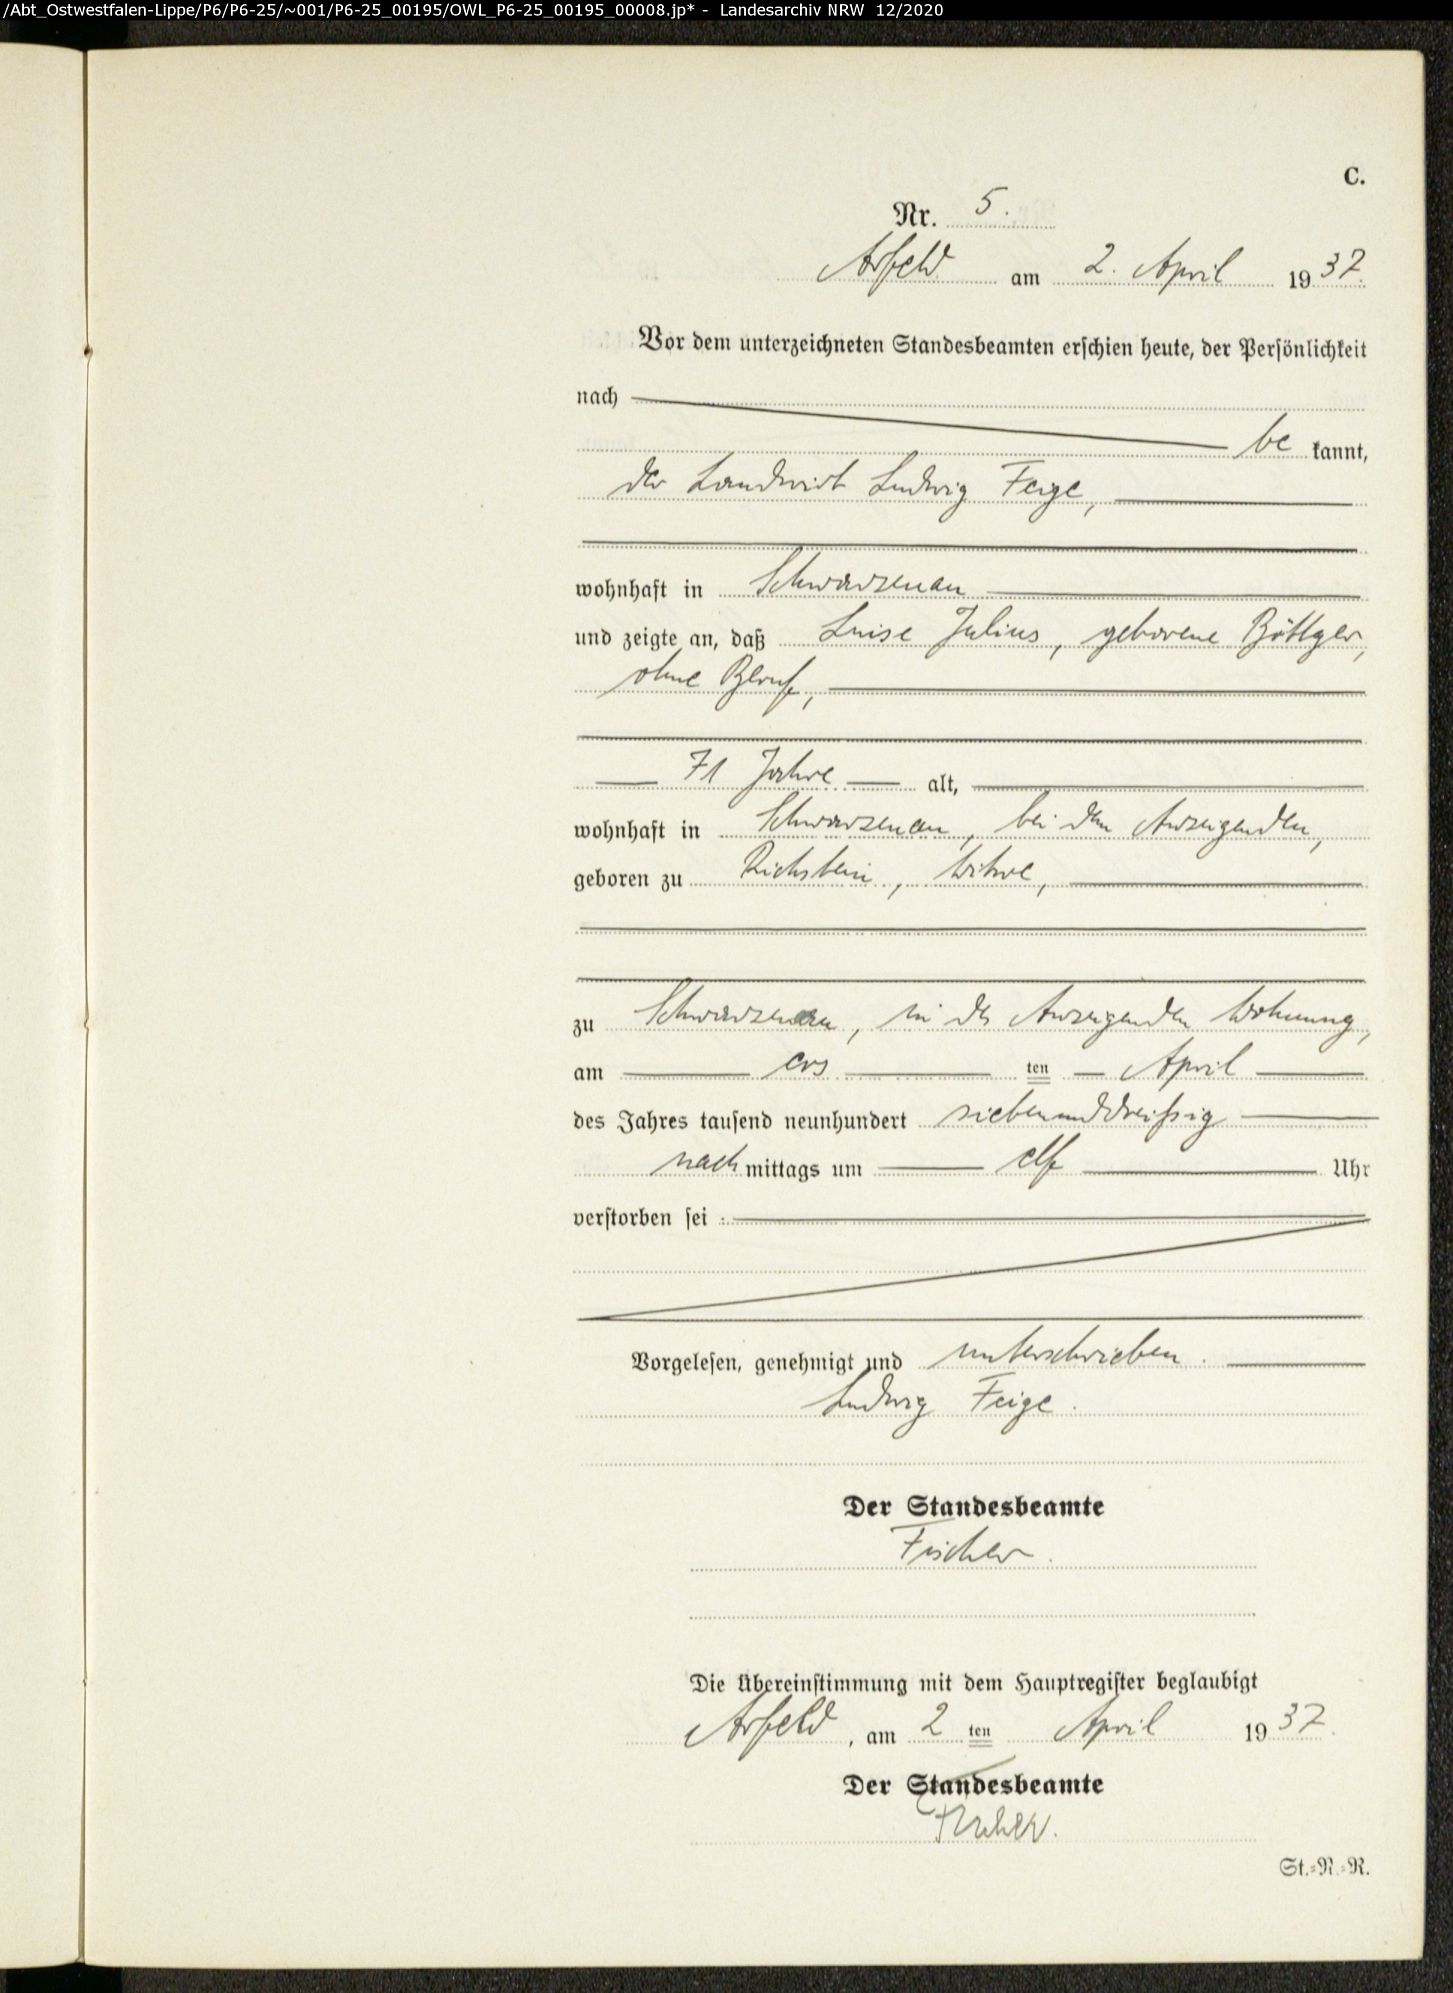 /Abt_Ostwestfalen-Lippe/P6/P6-25/~001/P6-25_00195/OWL_P6-25_00195_00008.jp* - Landesarchiv NRW 12/2020
C.
Nr. 5.
Arfeld am 2. April 1937.
Vor dem unterzeichneten Standesbeamten erschien heute, der Persönlichkeit
nach
be kannt,
der Landwirt Ludwig Feige,
wohnhaft in Schwarzenau
und zeigte an, daß Luise Julius, geborene Böttger,
ohne Beruf,
71 Jahre alt,
wohnhaft in Schwarzenau, bei dem Anzeigenden,
geboren zu Richstein, Witwe,
zu Schwarzenau, in des Anzeigenden Wohnung,
am ers ten April
des Jahres tausend neunhundert siebenunddreißig
nach mittags um elf Uhr
verstorben sei.
Vorgelesen, genehmigt und unterschrieben.
Ludwig Feige.
Der Standesbeamte
Fischer.
Die Übereinstimmung mit dem Hauptregister beglaubigt
Arfeld, am 2 ten April 1937.
Der Standesbeamte
Fischer.
St.=N.=R.